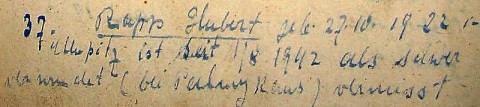 37. Rapp Hubert geb. 27.10. 1922 i.
ist seit 1/8 1942 als schwer
verwundet (bei ) vermisst